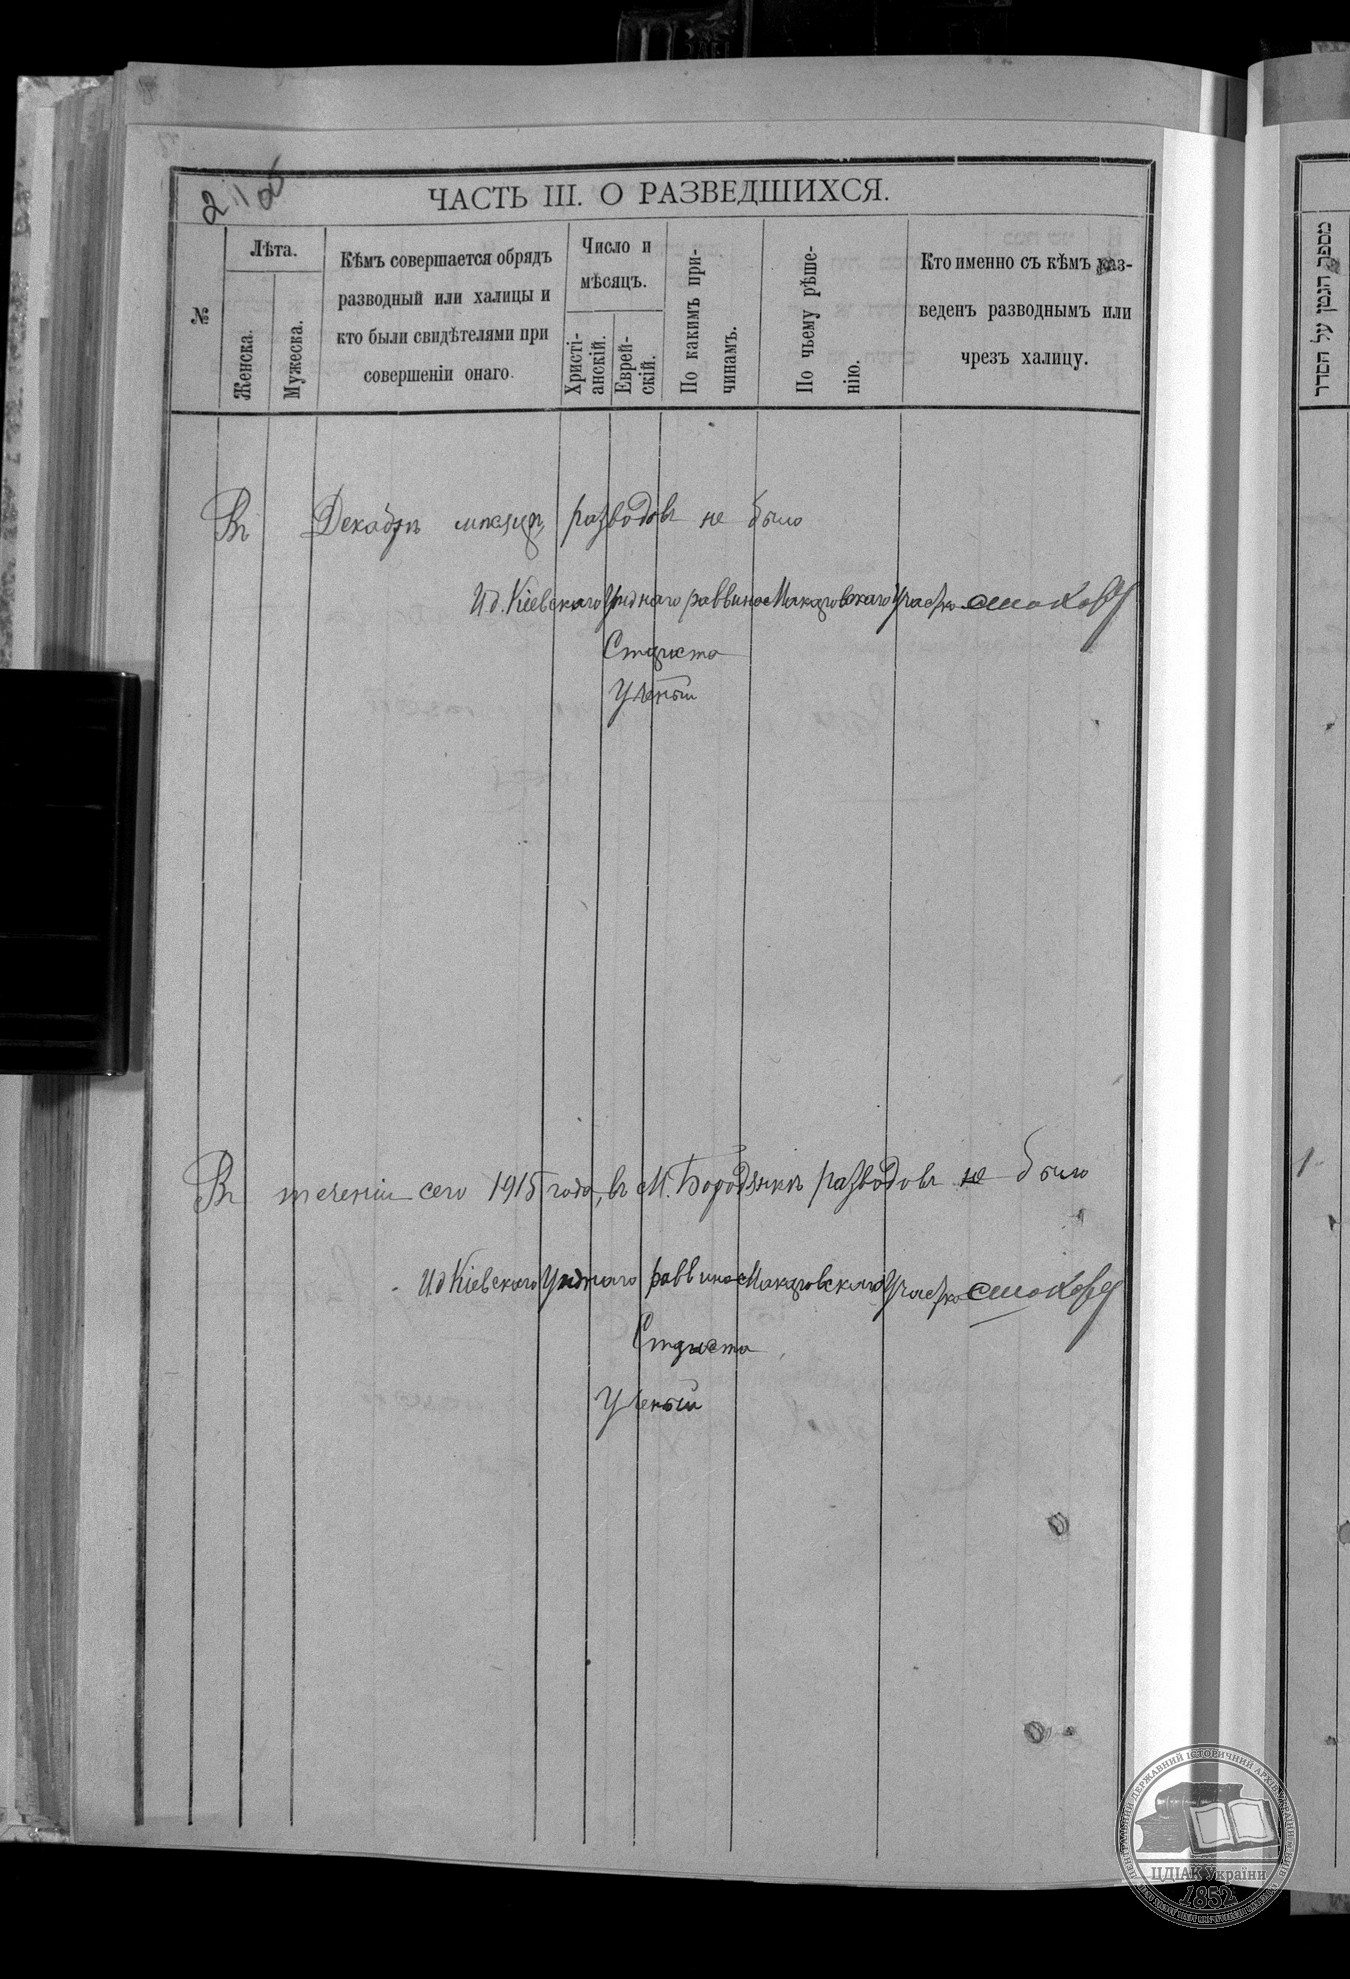 ЧАСТЬ III. О РАЗВЕДШИХСЯ.
№
Лѣта.
Женска.
Мужеска.
Кѣмъ совершается обрядъ
разводный или халицы и
кто были свидѣтелями при
совершеніи онаго.
Число и
мѣсяцъ.
Христі-
анскій.
Еврей-
скій.
По какимъ при-
чинамъ.
По чьему рѣше-
нію.
Кто именно съ кѣмъ раз-
веденъ разводнымъ или
чрезъ халицу.
Въ Декабрѣ мѣсяцѣ разводовъ не было
И. д. Кіевскаго Уѣзднаго раввина Макаровскаго Участка
Староста
Ученый
Въ теченіи сего 1915 года, въ М. Бородянкѣ разводовъ не было
И. д. Кіевскаго Уѣзднаго раввина Макаровскаго Участка
Староста
Ученый
מספר הנטין על הסדר
1.
ЦЕНТРАЛЬНИЙ ДЕРЖАВНИЙ ІСТОРИЧНИЙ АРХІВ УКРАЇНИ
ЦДІАК України
1852